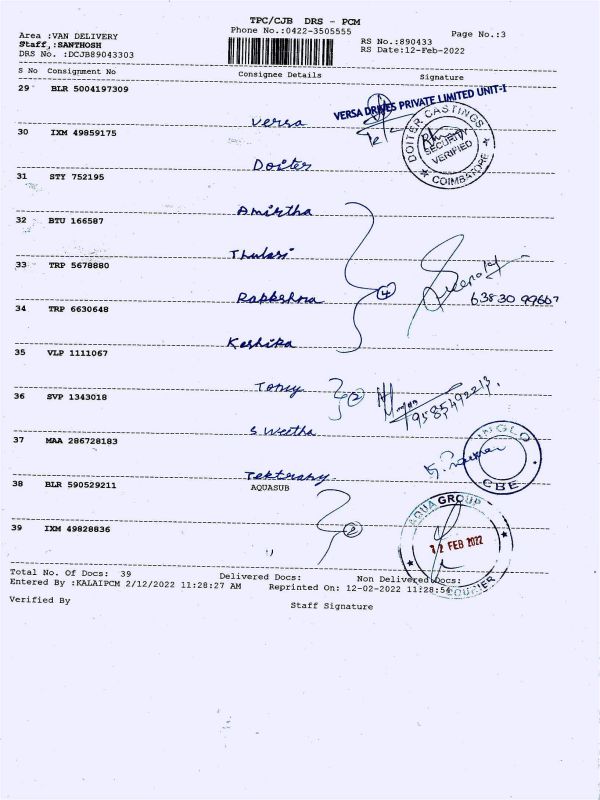 TPC/CJB DRS - PCM
Area :VAN DELIVERY Phone No.:0422-3505555 Page No.:3
Staff,:SANTHOSH RS No.:890433
DRS No. :DCJB89043303 RS Date:12-Feb-2022
S No Consignment No Consignee Details Signature
29 BLR 5004197309
Versa VERSA DRIVES PRIVATE LIMITED UNIT-I
30 IXM 49859175
Doiter DOITER CASTINGS SECURITY VERIFIED COIMBATORE
31 STY 752195
Amirtha
32 BTU 166587
Thulasi
33 TRP 5678880
4 63830 99667
34 TRP 6630648
Keshika
35 VLP 1111067
Tony 2 9585492213
36 SVP 1343018
Swetha
37 MAA 286728183
INGLO CBE
38 BLR 590529211 AQUASUB
39 IXM 49828836
2 AQUA GROUP 12 FEB 2022 COURIER
Total No. Of Docs: 39 Delivered Docs: Non Delivered Docs:
Entered By :KALAIPCM 2/12/2022 11:28:27 AM Reprinted On: 12-02-2022 11:28:54
Verified By Staff Signature